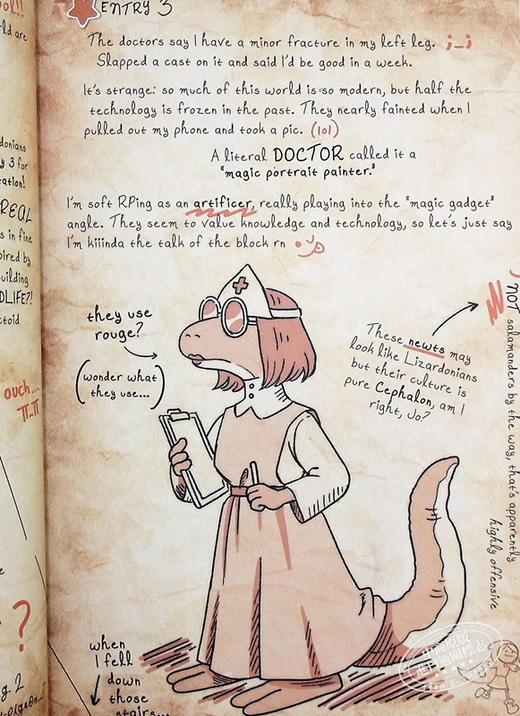 ENTRY 3
The doctors say I have a minor fracture in my left leg. ;_;
Slapped a cast on it and said I'd be good in a week.
It's strange: so much of this world is so modern, but half the
technology is frozen in the past. They nearly fainted when I
pulled out my phone and took a pic. (lol)
A literal DOCTOR called it a
"magic portrait painter."
I'm soft RPing as an artificer, really playing into the "magic gadget"
angle. They seem to value knowledge and technology, so let's just say
I'm kiiinda the talk of the block rn
they use
rouge?
(wonder what
they use...)
These newts may
look like Lizardonians
but their culture is
pure Cephalon, am I
right, Jo?
NOT salamanders by the way, that's apparently
highly offensive
when
I fell
down
those
stairs...
ld are
donians
y 3 for
ation!
REAL
s in fine
pired by
uilding
DLIFE?!
ctoid
ouch...
π_π
?
g. 2